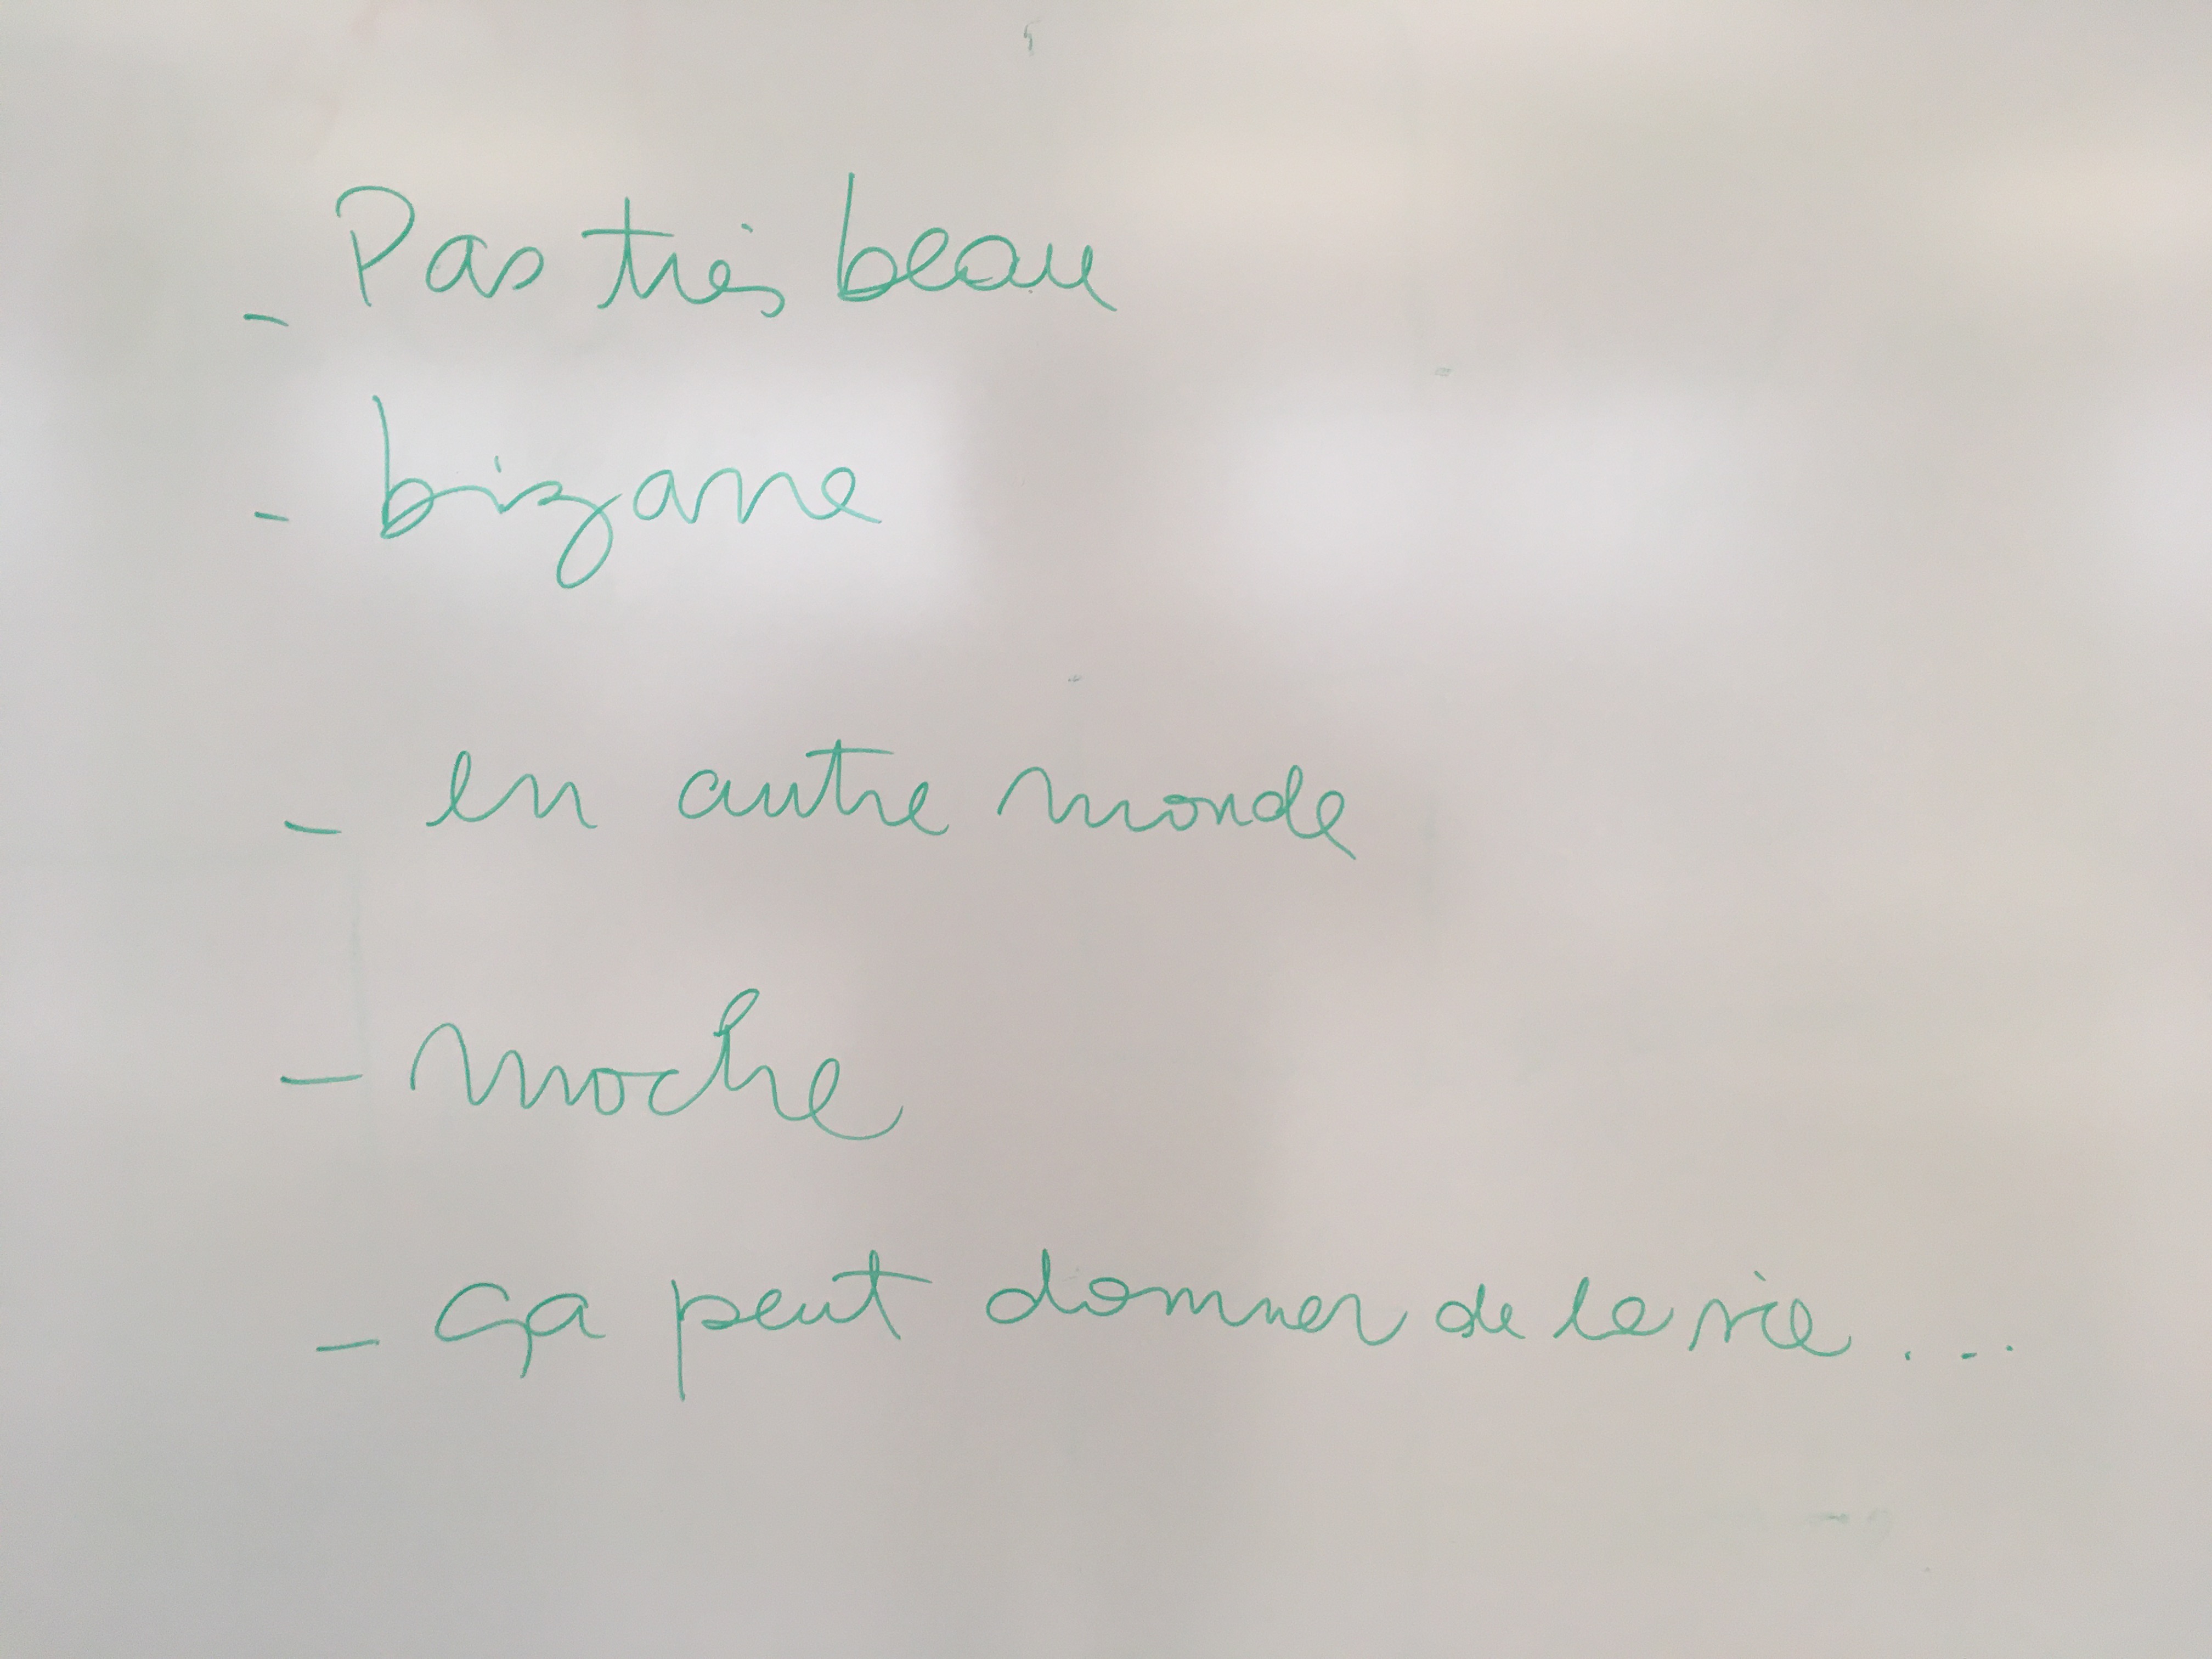 - Pas très beau
- bizarre
- en autre monde
- moche
- ça peut donner de la vie...